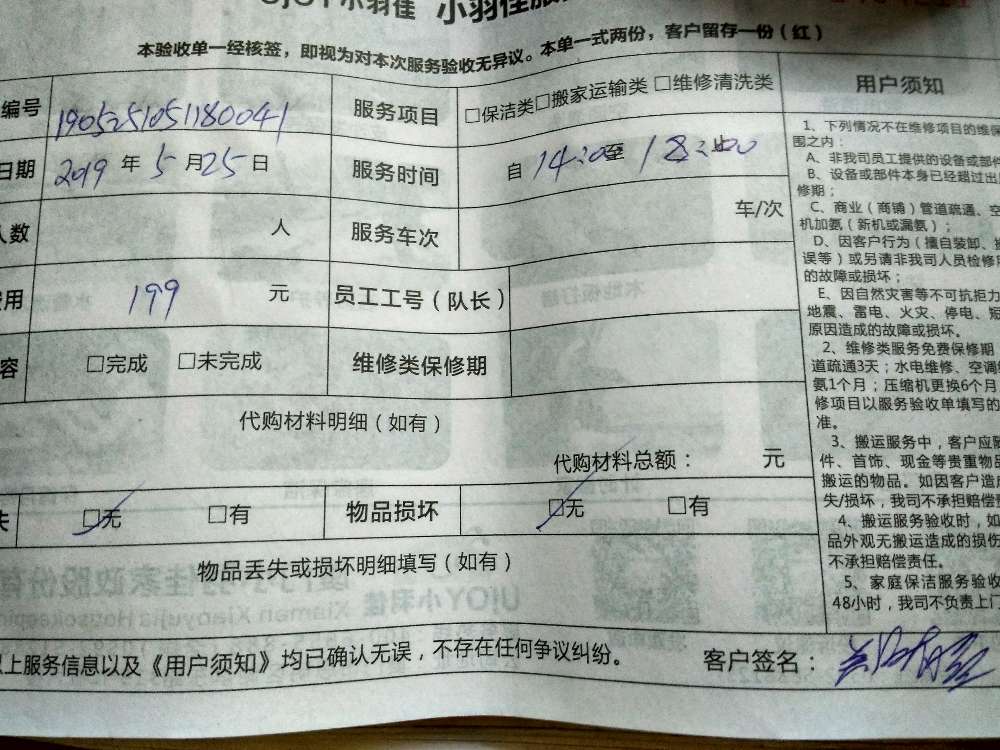 UJOY小羽佳 小羽佳服
本验收单一经核签，即视为对本次服务验收无异议。本单一式两份，客户留存一份（红）
编号 1905251051180041 服务项目 □保洁类□搬家运输类 □维修清洗类
日期 2019 年 5 月 25 日 服务时间 自 14:20至
人数 人 服务车次 车/次
费用 199 元 员工工号（队长）
容 □完成 □未完成 维修类保修期
代购材料明细（如有）
代购材料总额： 元
失 □无 □有 物品损坏 □无 □有
物品丢失或损坏明细填写（如有）
以上服务信息以及《用户须知》均已确认无误，不存在任何争议纠纷。 客户签名：
用户须知
1、下列情况不在维修项目的维保
围之内：
A、非我司员工提供的设备或部件
B、设备或部件本身已经超过出
修期；
C、商业（商铺）管道疏通、空
机加氨（新机或漏氨）；
D、因客户行为（擅自装卸、操
误等）或另请非我司人员检修
的故障或损坏；
E、因自然灾害等不可抗拒力
地震、雷电、火灾、停电、短
原因造成的故障或损坏。
2、维修类服务免费保修期
道疏通3天；水电维修、空调
氨1个月；压缩机更换6个月
修项目以服务验收单填写的
准。
3、搬运服务中，客户应
件、首饰、现金等贵重物品
搬运的物品。如因客户造成
失/损坏，我司不承担赔偿
4、搬运服务验收时，如
品外观无搬运造成的损伤
不承担赔偿责任。
5、家庭保洁服务验收
48小时，我司不负责上门